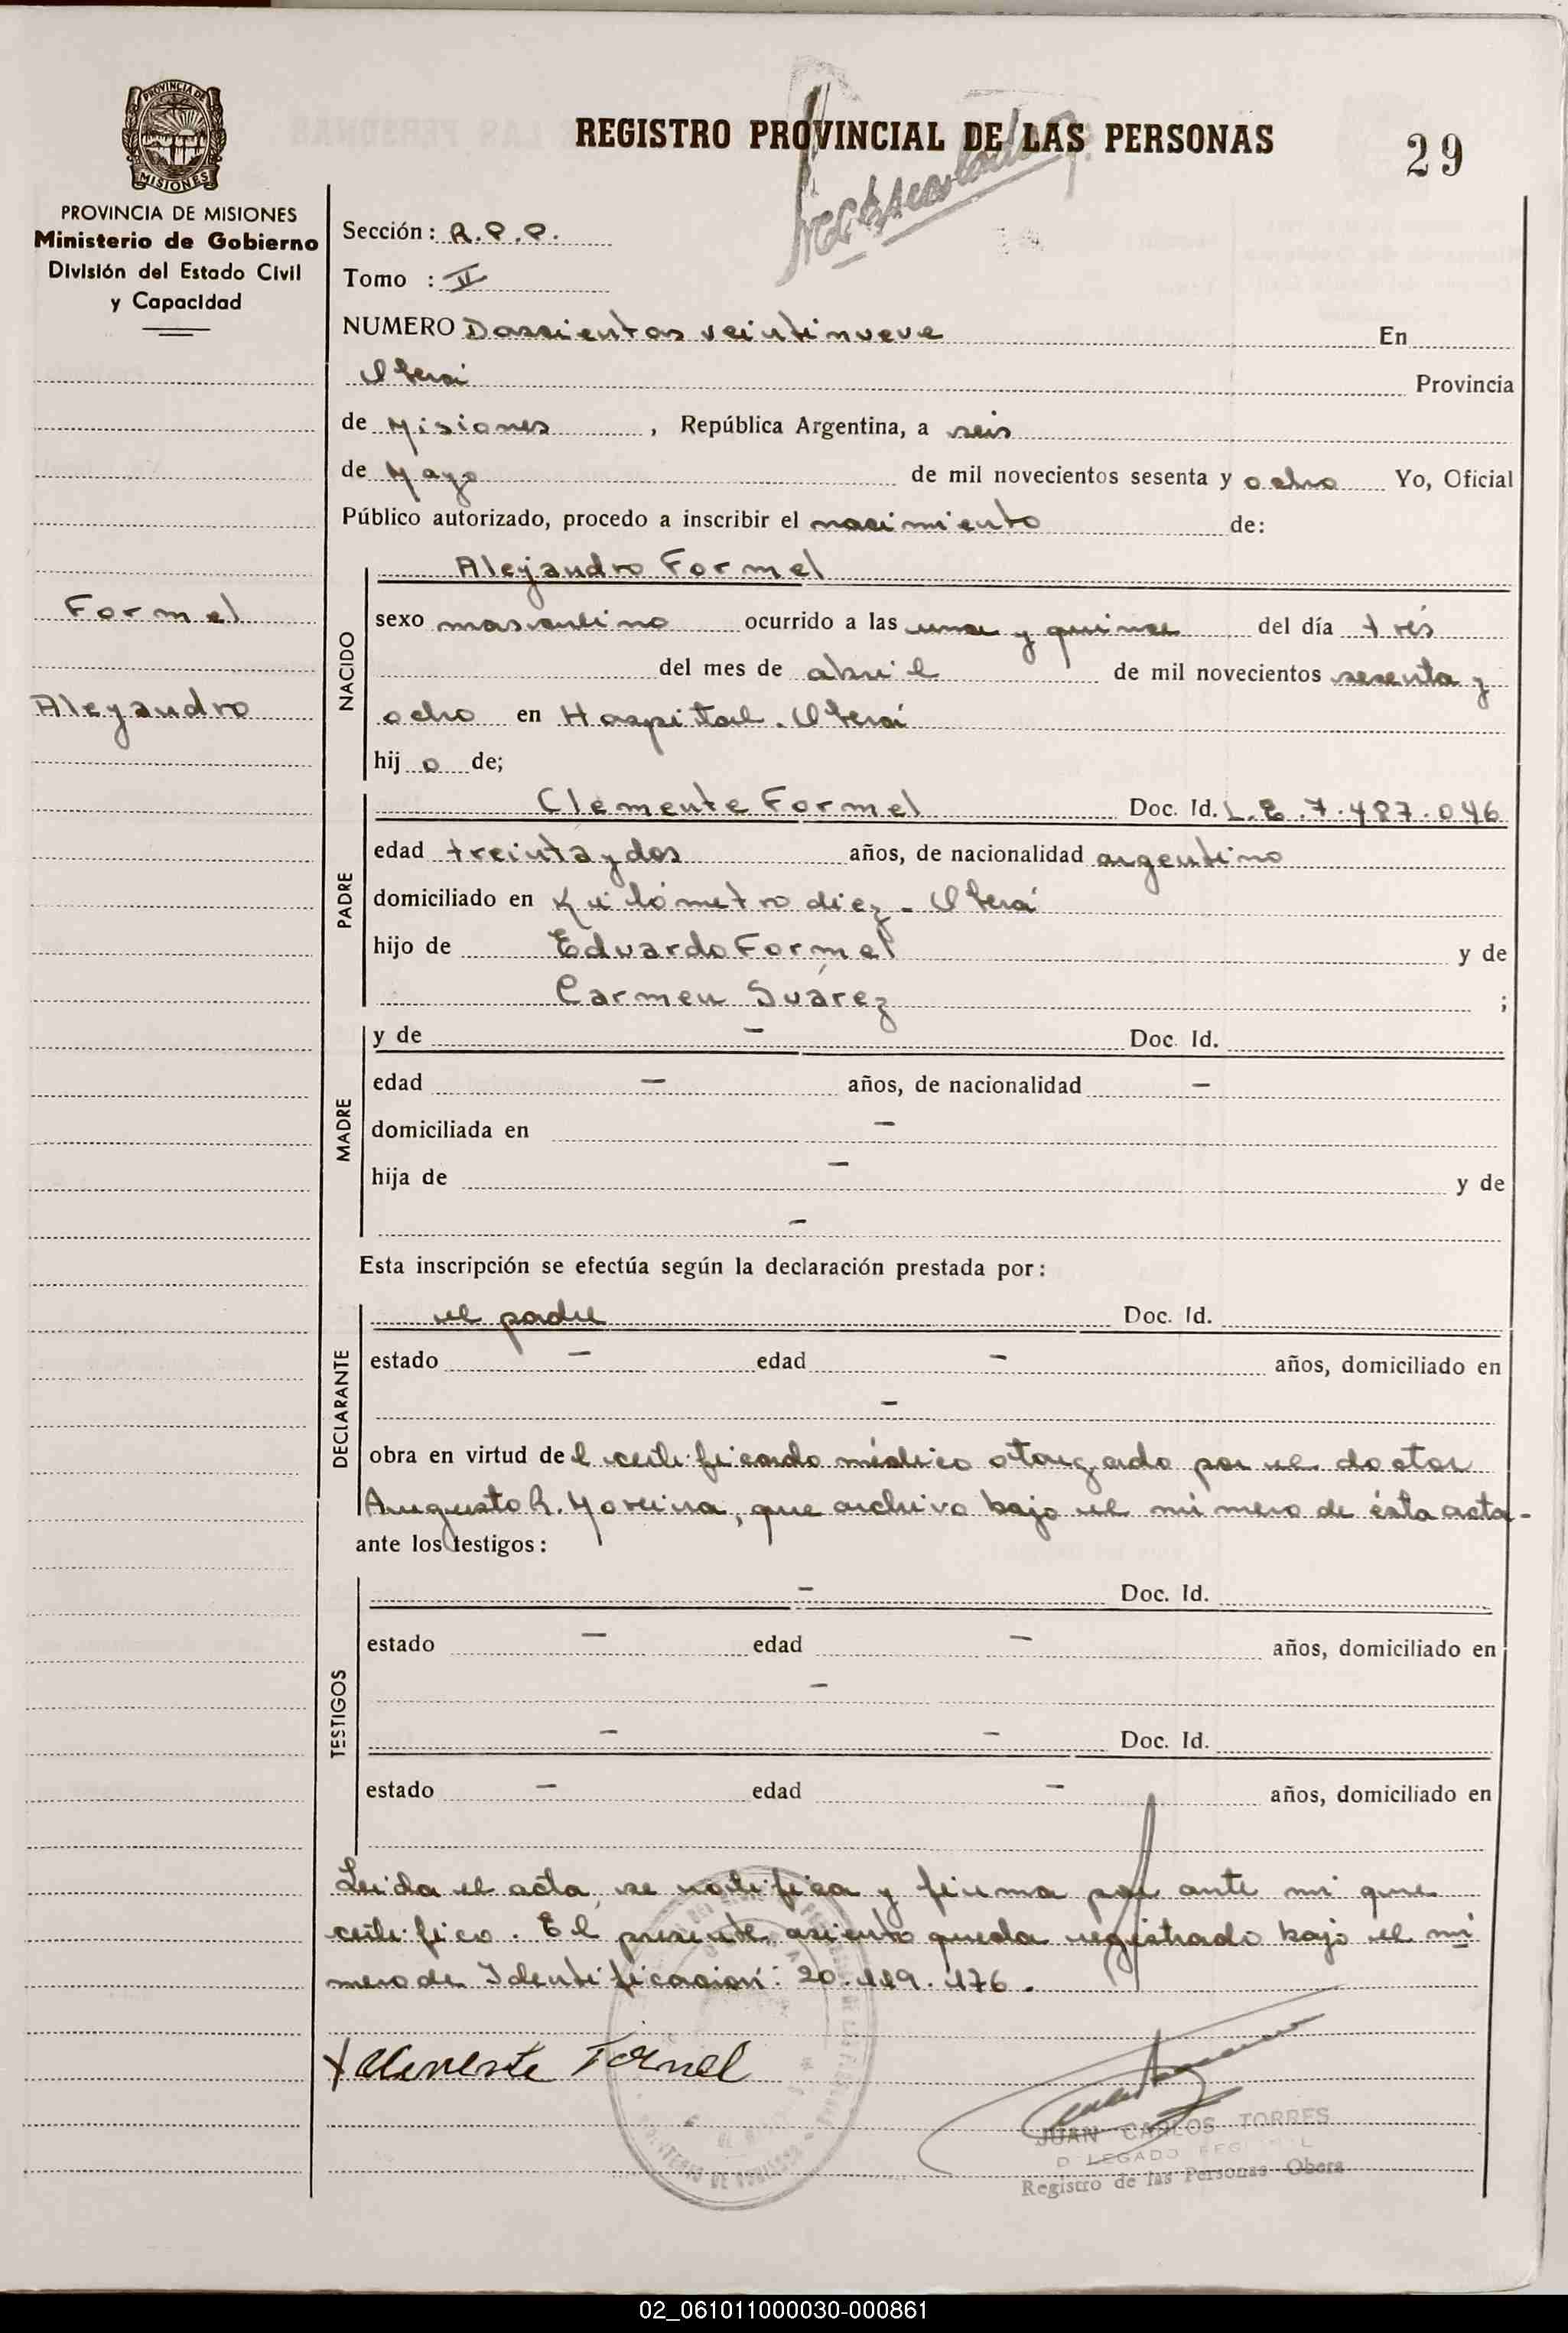 REGISTRO PROVINCIAL DE LAS PERSONAS
29
PROVINCIA DE
MISIONES
PROVINCIA DE MISIONES
Ministerio de Gobierno
División del Estado Civil
y Capacidad
Sección: R.P.P.
Tomo : II
NUMERO Doscientos veintinueve En
Oberá Provincia
de Misiones , República Argentina, a seis
de Mayo de mil novecientos sesenta y ocho Yo, Oficial
Público autorizado, procedo a inscribir el nacimiento de:
Formel
Alejandro
NACIDO
Alejandro Formel
sexo masculino ocurrido a las una y quince del día trés
del mes de abril de mil novecientos sesenta y
ocho en Hospital. Oberá
hij o de;
PADRE
Clemente Formel Doc. Id. L.E. 7.487.046
edad treinta y dos años, de nacionalidad argentino
domiciliado en Kilómetro diez - Oberá
hijo de Eduardo Formel y de
Carmen Suárez ;
MADRE
y de - Doc. Id.
edad - años, de nacionalidad -
domiciliada en -
hija de - y de
-
Esta inscripción se efectúa según la declaración prestada por:
DECLARANTE
el padre Doc. Id.
estado - edad - años, domiciliado en
-
obra en virtud del certificado médico otorgado por el doctor
Augusto R. Moreira, que archivo bajo el número de ésta acta-
ante los testigos:
TESTIGOS
- Doc. Id.
estado - edad - años, domiciliado en
-
- - Doc. Id.
estado - edad - años, domiciliado en
Leida el acta, se notifica y firma por ante mi que
certifico. El presente asiento queda registrado bajo el nú
mero de Identificación: 20.119.176.
Clemente Formel
JUAN CARLOS TORRES
Registro de las Personas Oberá
02_061011000030-000861